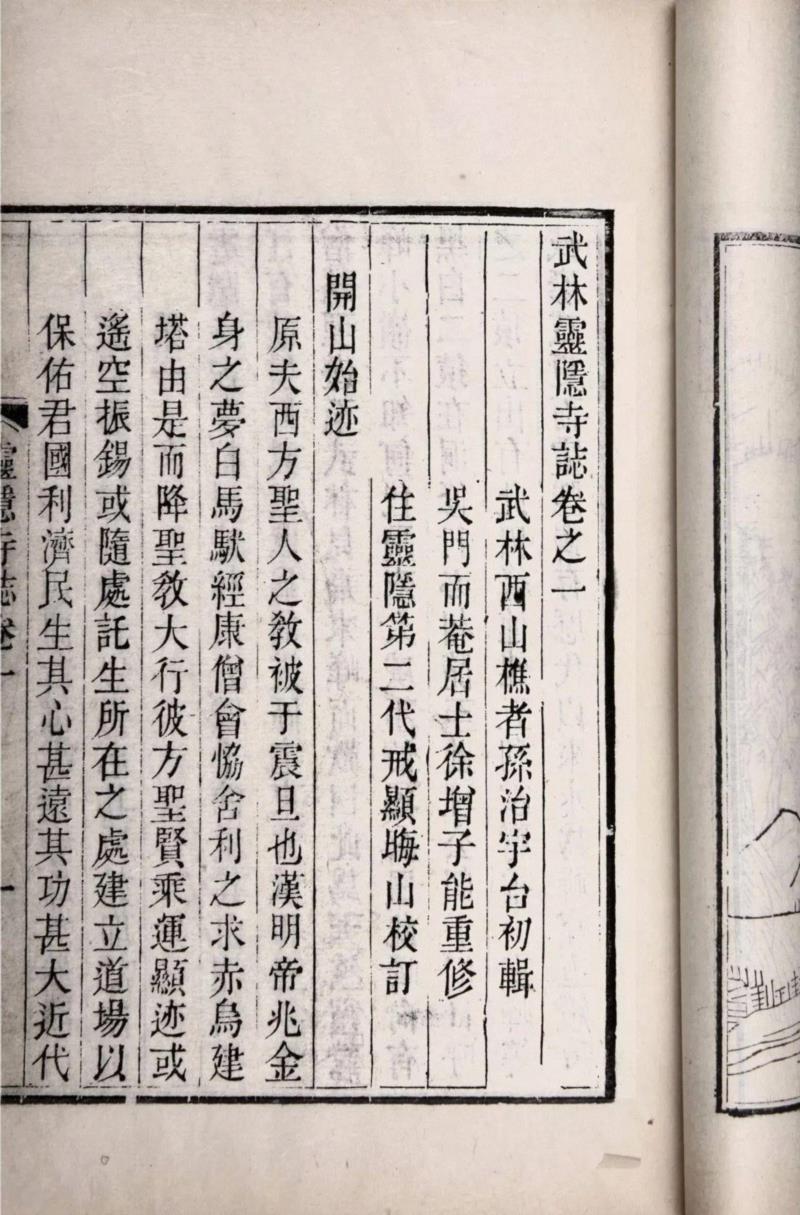 武林靈隱寺誌卷之一
武林西山樵者孫治宇台初輯
吳門而菴居士徐增子能重修
住靈隱第二代戒顯晦山校訂
開山始迹
原夫西方聖人之教被于震旦也漢明帝兆金
身之夢白馬馱經康僧會愶舍利之求赤烏建
塔由是而降聖教大行彼方聖賢乘運顯迹或
遙空振錫或隨處託生所在之處建立道場以
保佑君國利濟民生其心甚遠其功甚大近代
靈隱寺誌卷一
一